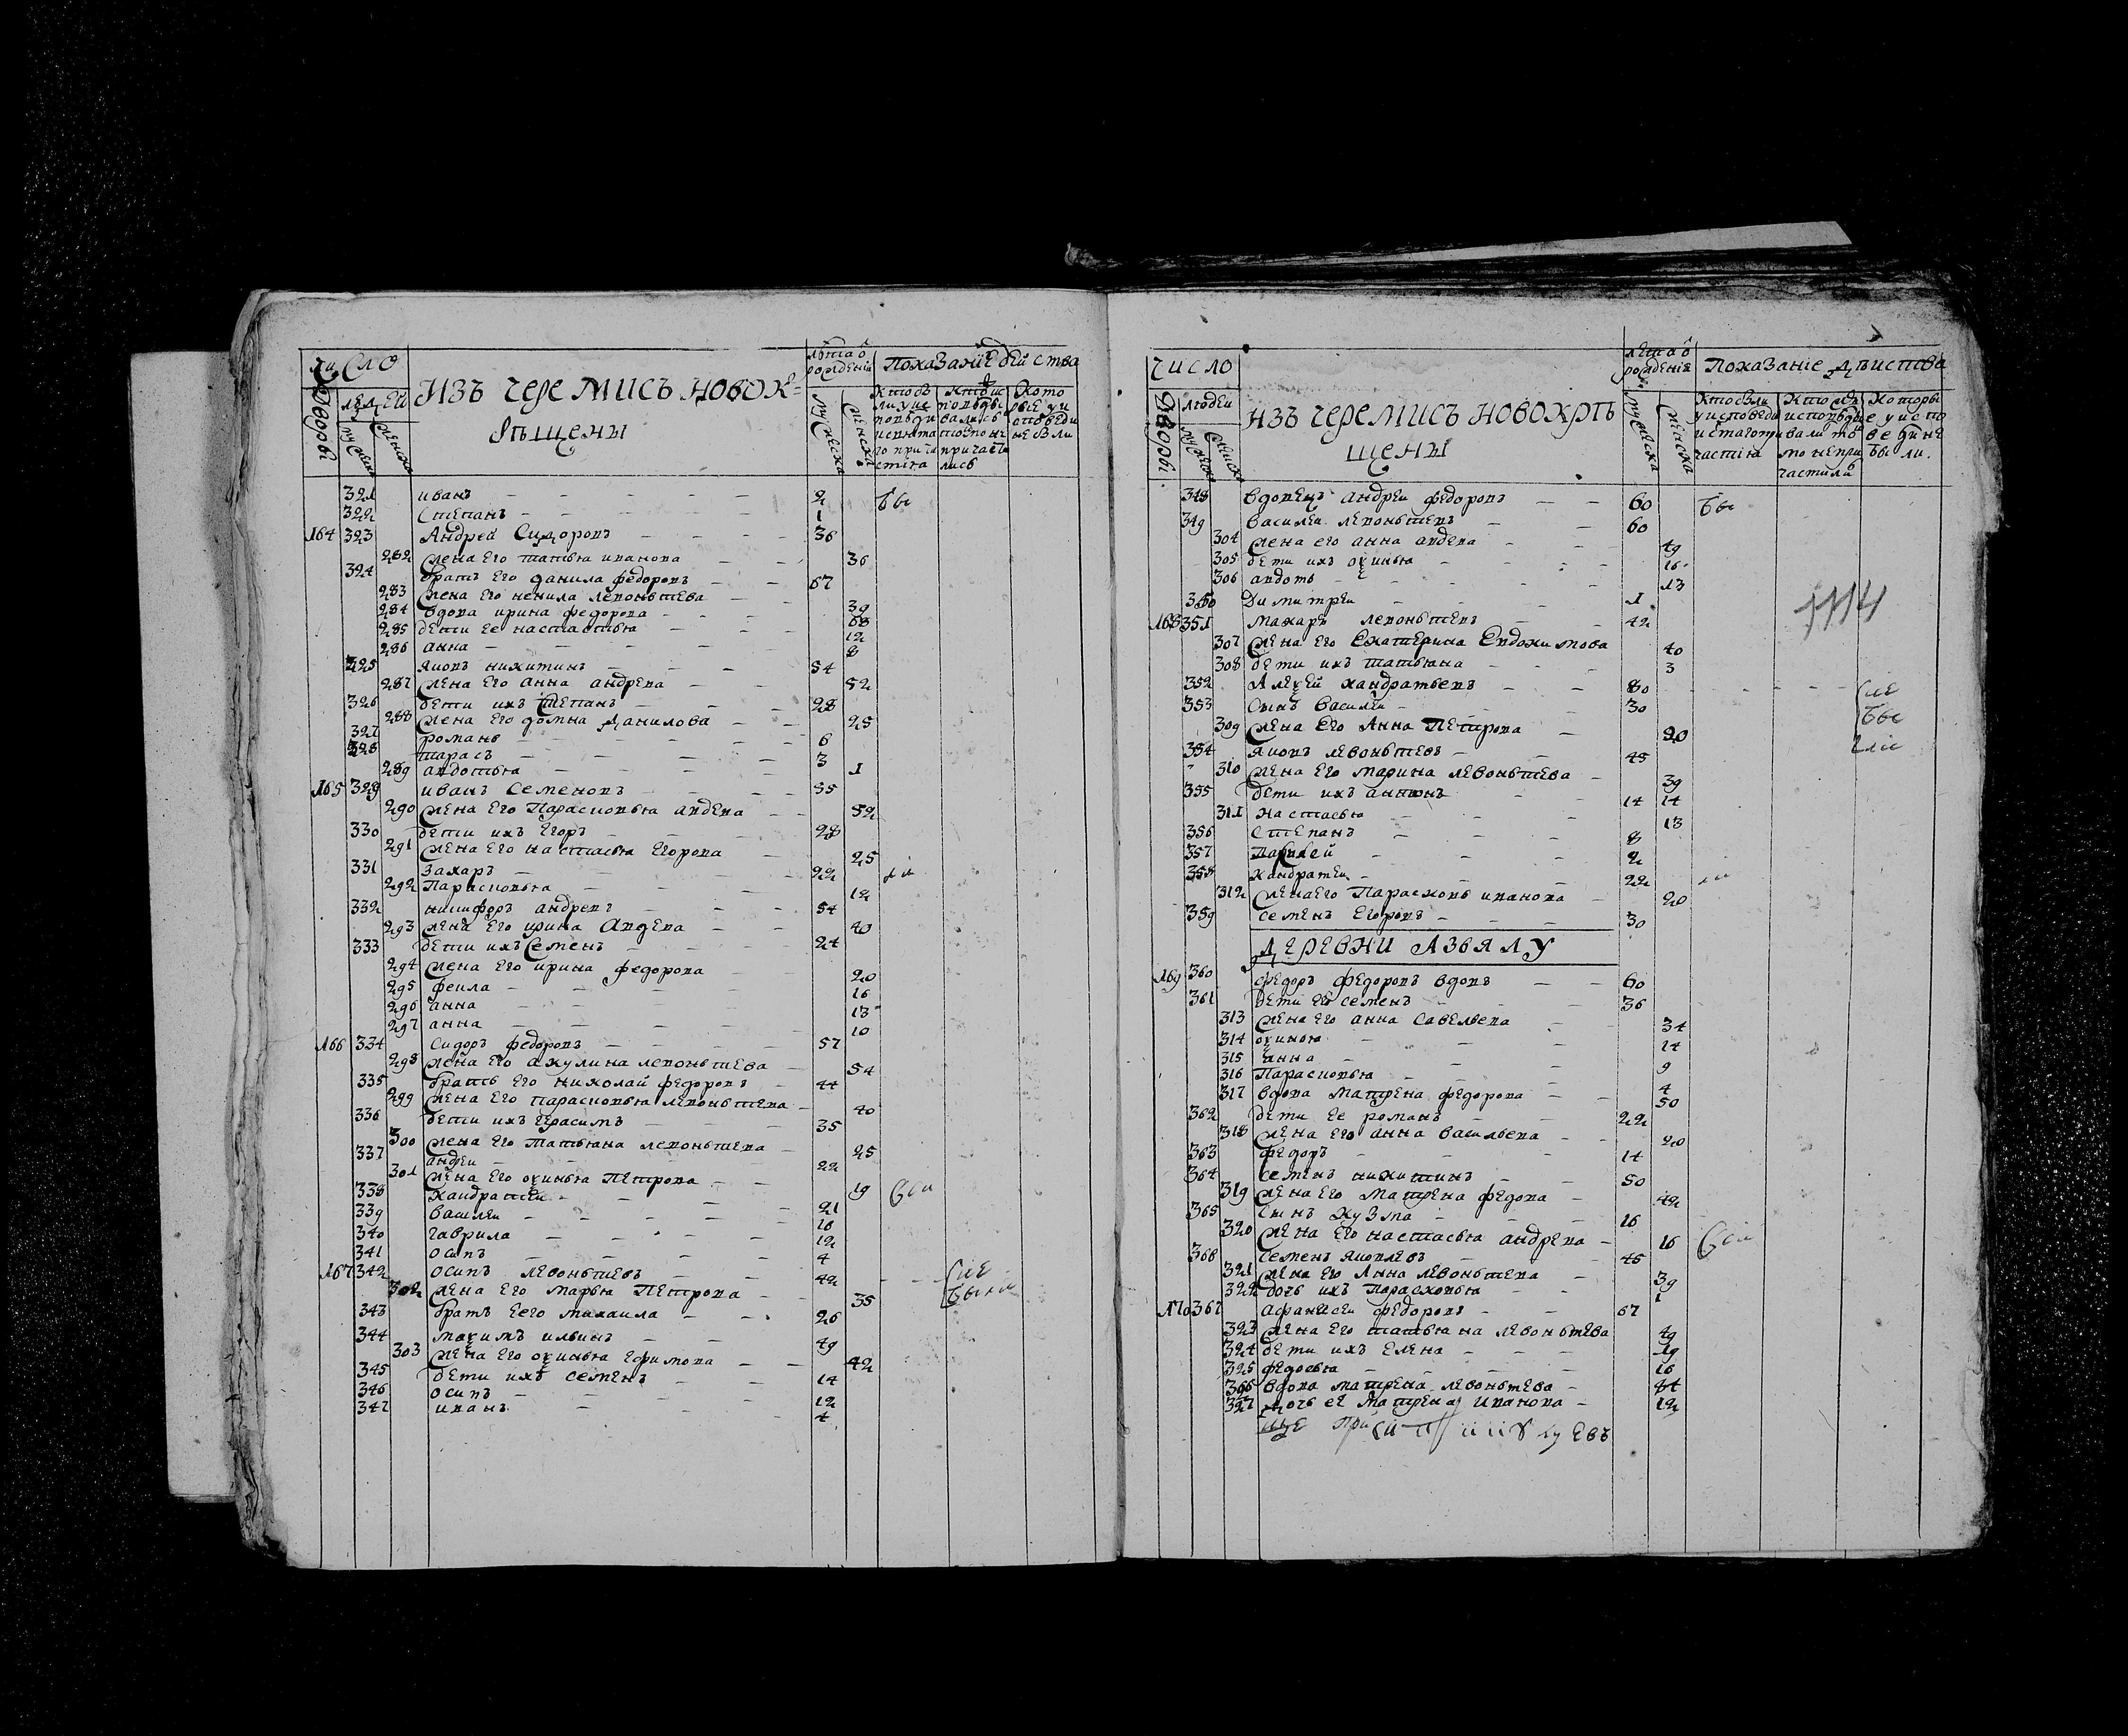 Число
изъ черемисъ новок=
рѣщены
лѣта ѿ рожденiя
Показанiе действа
людей
дворовъ
мужеска
женска
321 иванъ 2 бы
322 Степанъ 1
164 323 Андрей Сидоровъ 36
282 жена его татьѧна иванова 36
324 братъ его данила федоровъ 67
283 жена его ненила левоньтева 39
284 вдова ирина федорова 68
285 дети ее настастьѧ 12
286 анна 8
325 Яковъ никитинъ 54
287 жена его анна андрева 52
326 дети ихъ Степанъ 28
288 жена его домна данилова 25
327 романъ 6
328 тарасъ 3
289 авдотьѧ 1
165 329 иванъ Семеновъ 55
290 жена его Парасковьѧ авдева 52
330 дети ихъ Егоръ 28
291 жена его настасьѧ Егорова 25
331 Захаръ 22 ли
292 Парасковьѧ 12
332 никифоръ андревъ 54
293 жена его ирина Авдева 40
333 дети ихъ Семенъ 24
294 жена его ирина федорова 20
295 фекла 16
296 анна 13
297 анна 10
166 334 Сидоръ федоровъ 57
298 жена его акулина левоньтева 54
335 братъ его николай федоровъ 44
299 жена его парасковьѧ левоньтева 40
336 дети ихъ герасимъ 35
300 жена его Татьѧна левоньтева 25
337 андреи 22
301 жена его оѯиньѧ Петрова 19
338 Кандратеи 21
339 Василеи 16
340 гаврила 12
341 осипъ 4
167 342 осипъ левоньтевъ 42 не
302 жена его марьѧ Петрова 35 были
343 братъ Еего михаила 26
344 маѯимъ ильинъ 49
303 жена его оѯиньѧ Ефимова 42
345 дети ихъ семенъ 14
346 осипъ 12
347 иванъ 4
Число
изъ черемисъ новокрѣ
щены
лета ѿ рожденiя
Показанiе дѣиства
людеи
дворовъ
мужеска
женска
348 вдовецъ андреи федоровъ 60 бы
349 василеи левоньтевъ 60
304 жена его анна авдева 49
305 дети ихъ оѯиньѧ 16
306 авдотьѧ 13
350 Димитреи 1
1114
168 351 макаръ левоньтевъ 42
307 жена его Екатерина Евдокимова 40
308 дети ихъ татьѧна 3
352 Алеѯей кандратьевъ 80 не
353 Сынъ василеи 30 бы
309 жена его Анна Петрова 20
354 Яковъ левоньтевъ 45 ли
310 жена его марина левоньтева 39
355 дети ихъ антонъ 14 14
311 настасьѧ 13
356 Степанъ 8
357 2
358 Кандратеи 22 ли
312 жена его Парасковьѧ иванова 20
359 семенъ Егоровъ 30
Деревни Азъялу
169 360 федоръ федоровъ вдовъ 60
361 дети его семенъ 36
313 жена его анна Савельева 34
314 оѯиньѧ 14
315 анна 9
316 Парасковьѧ 4
317 вдова матрена федорова 50
362 дети ее романъ 22
318 жена его анна васильева 20
363 федоръ 14
364 семенъ никитинъ 50
319 жена его матрена федова 42
365 сынъ кузма 16
320 жена его настасьѧ андрева 16
366 семенъ яковлевъ 45
321 жена его Анна левоньтева 39
322 дочь ихъ Парасковьѧ 1
170 367 афанасеи федоровъ 67
323 жена его татьѧна левоньтева 49
324 дети ихъ Елена 19
325 федосьѧ 16
326 вдова матрена левоньтева 84
327 дочь ее матрена Иванова 12